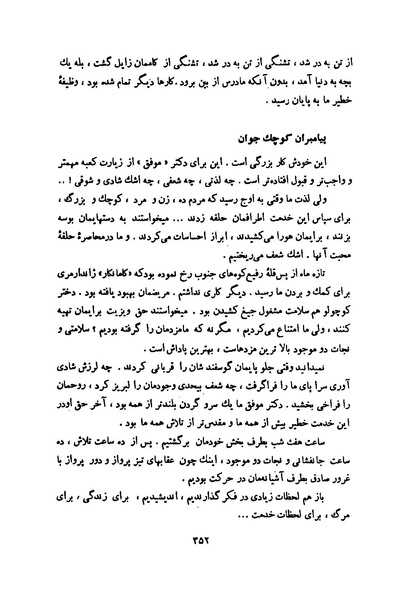 از تن به در شد ، تشنگی از تن به در شد ، تشنگی از کاممان زایل گشت ، بله یك
بچه به دنیا آمد ، بدون آنکه مادرس از بین برود . کارها دیگر تمام شده بود ، وظیفهٔ
خطیر ما به پایان رسید .
پیامبران کوچك جوان
این خودش کار بزرگی است . این برای دکتر « موفق » از زیارت کعبه مهمتر
و واجب‌تر و قبول افتاده‌تر است . چه لذتی ، چه شعفی ، چه اشك شادی و شوقی ! ..
ولی لذت ما وقتی به اوج رسید که مردم ده ، زن و مرد ، کوچك و بزرگ ،
برای سپاس این خدمت اطرافمان حلقه زدند ... میخواستند به دستهایمان بوسه
بزنند ، برایمان هورا می‌کشیدند ، ابراز احساسات می‌کردند . و ما درمحاصرهٔ حلقهٔ
محبت آنها . اشك شعف می‌ریختیم .
تازه ماه از پس‌قلهٔ رفیع‌کوه‌های جنوب رخ نموده بودکه «کاماندکار» ژاندارمری
برای کمك و بردن ما رسید . دیگر کاری نداشتیم . مریضمان بهبود یافته بود . دختر
کوچولو هم سلامت مشغول جیغ کشیدن بود . میخواستند حق ویزیت برایمان تهیه
کنند ، ولی ما امتناع می‌کردیم ، مگر نه که مامزدمان را گرفته بودیم ؟ سلامتی و
نجات دو موجود بالا ترین مزدهاست ، بهترین پاداش است .
نمیدانید وقتی جلو پایمان گوسفند شان را قربانی کردند . چه لرزش شادی
آوری سرا پای ما را فراگرفت ، چه شعف بیحدی وجودمان را لبریز کرد ، روحمان
را فراخی بخشید . دکتر موفق ما یك سرو گردن بلندتر از همه بود ، آخر حق اودر
این خدمت خطیر بیش از همه ما و مقدس‌تر از تلاش همه ما ها بود .
ساعت هفت شب بطرف بخش خودمان برگشتیم . پس از ده ساعت تلاش ، ده
ساعت جانفشانی و نجات دو موجود ، اینك چون عقابهای تیز پرواز و دور پرواز با
غرور صادق بطرف آشیانه‌مان در حرکت بودیم .
باز هم لحظات زیادی در فکر گذارندیم ، اندیشیدیم ، برای زندگی ، برای
مرگ ، برای لحظات خدمت ...
۳۵۲